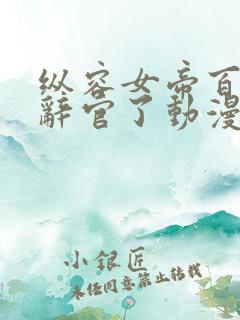 纵容女帝百
辭官了動漫
小銀匠
未经同意禁止转载